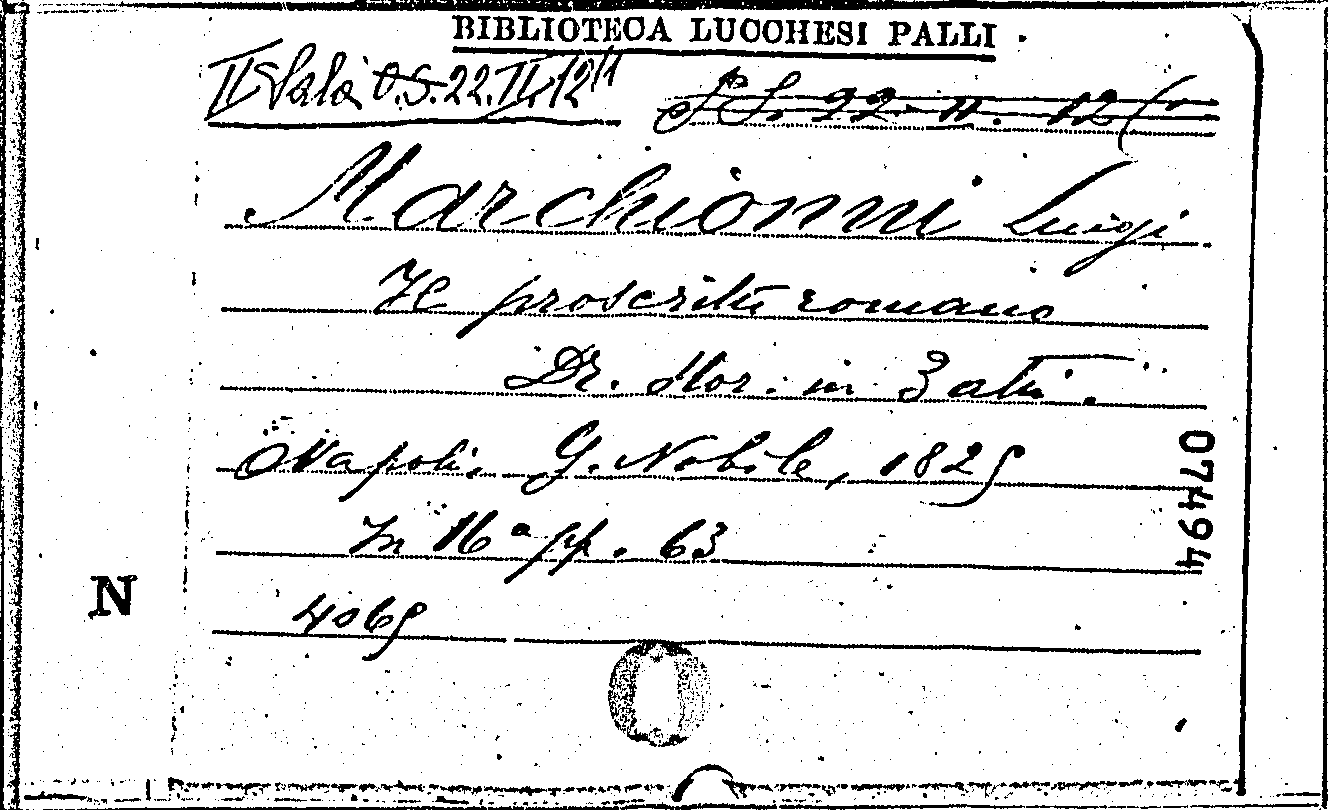 BIBLIOTECA LUCCHESI PALLI
II Sala O.S. 22.II.12
S.S. 22. II. 12
Marchionni Luigi
Il proscritto romano
Dr. stor. in 3 atti.
Napoli. G. Nobile, 1825
In 16° pp. 63
4065
N
07494